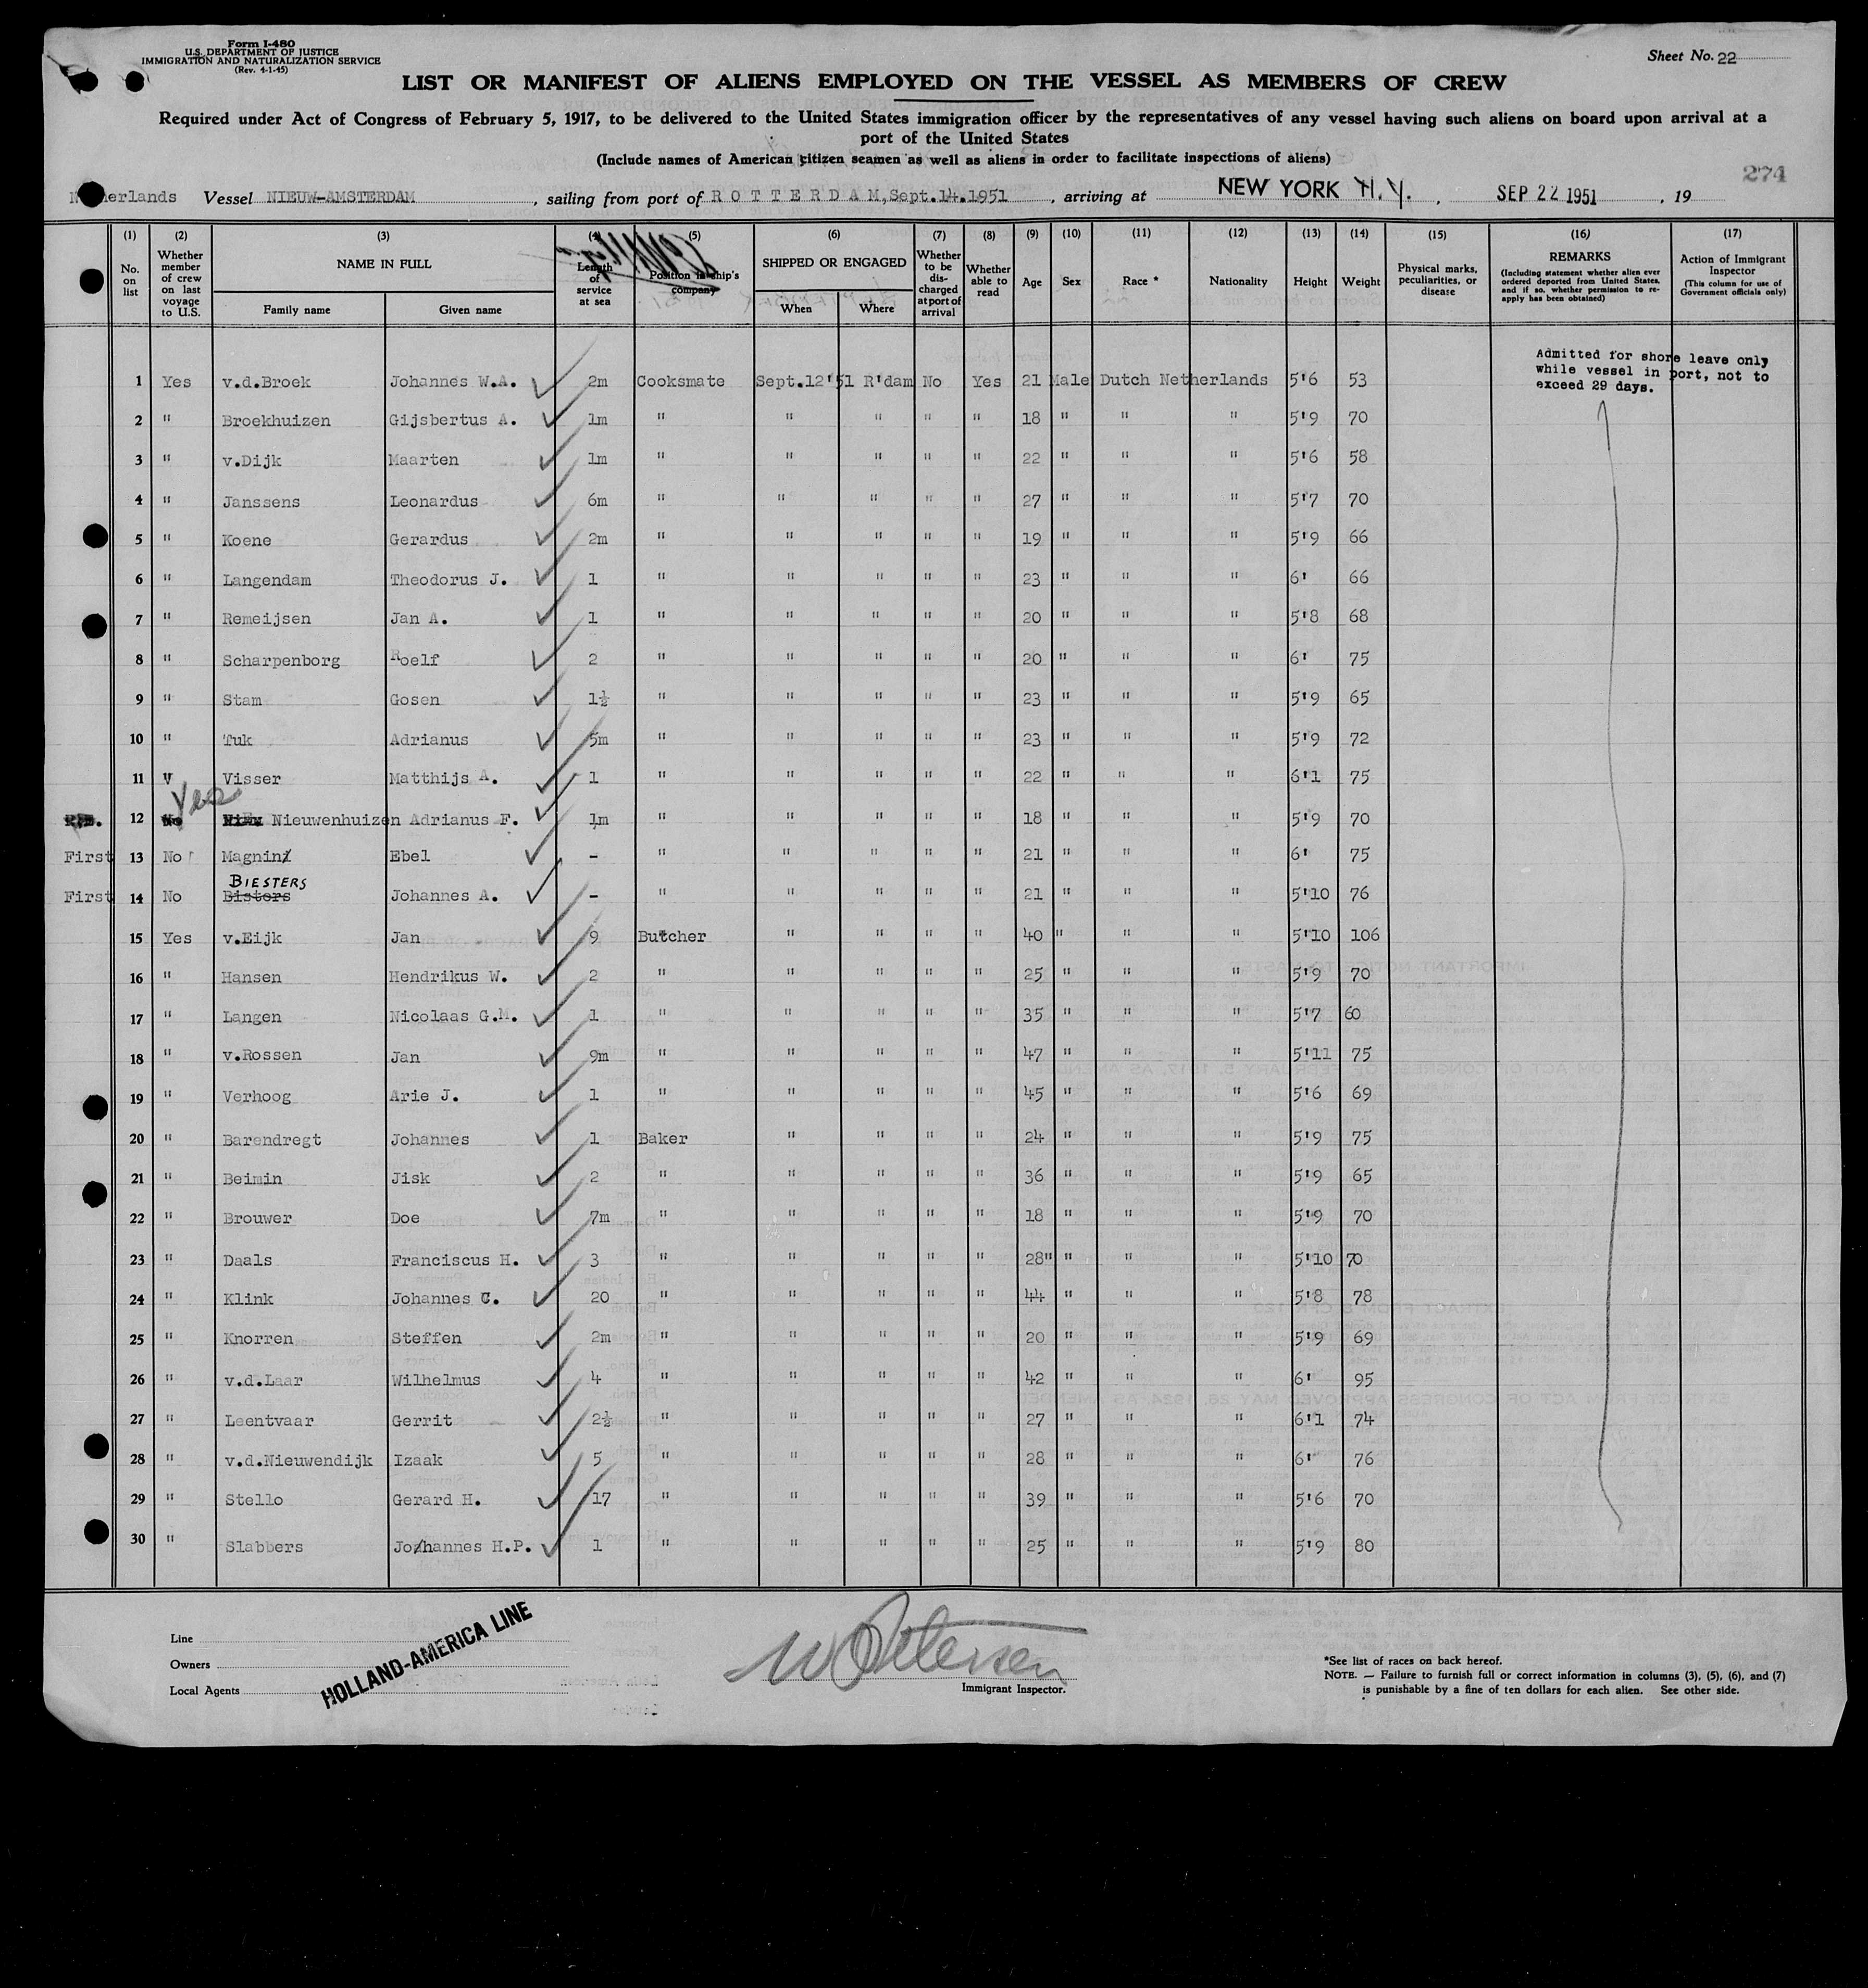 Form I-480
U.S. DEPARTMENT OF JUSTICE
IMMIGRATION AND NATURALIZATION SERVICE
(Rev. 4-1-45)
Sheet No. 22
LIST OR MANIFEST OF ALIENS EMPLOYED ON THE VESSEL AS MEMBERS OF CREW
Required under Act of Congress of February 5, 1917, to be delivered to the United States immigration officer by the representatives of any vessel having such aliens on board upon arrival at a
port of the United States
(Include names of American citizen seamen as well as aliens in order to facilitate inspections of aliens)
274
Netherlands Vessel NIEUW-AMSTERDAM, sailing from port of R O T T E R D A M, Sept.14.1951, arriving at NEW YORK N.Y., SEP 22 1951, 19
(1) (2) (3) (4) (5) (6) (7) (8) (9) (10) (11) (12) (13) (14) (15) (16) (17)
No. on list
Whether member of crew on last voyage to U.S.
NAME IN FULL
Family name Given name
Length of service at sea
Position in ship's company
SHIPPED OR ENGAGED
When Where
Whether to be discharged at port of arrival
Whether able to read
Age Sex Race * Nationality Height Weight
Physical marks, peculiarities, or disease
REMARKS
(Including statement whether alien ever ordered deported from United States, and if so, whether permission to re-apply has been obtained)
Action of Immigrant Inspector
(This column for use of Government officials only)
Admitted for shore leave only
while vessel in port, not to
exceed 29 days.
1 Yes v.d.Broek Johannes W.A. 2m Cooksmate Sept.12'51 R'dam No Yes 21 Male Dutch Netherlands 5'6 53
2 " Broekhuizen Gijsbertus A. 1m " " " " " 18 " " " 5'9 70
3 " v.Dijk Maarten 1m " " " " " 22 " " " 5'6 58
4 " Janssens Leonardus 6m " " " " " 27 " " " 5'7 70
5 " Koene Gerardus 2m " " " " " 19 " " " 5'9 66
6 " Langendam Theodorus J. 1 " " " " " 23 " " " 6' 66
7 " Remeijsen Jan A. 1 " " " " " 20 " " " 5'8 68
8 " Scharpenborg Roelf 2 " " " " " 20 " " " 6' 75
9 " Stam Gosen 1½ " " " " " 23 " " " 5'9 65
10 " Tuk Adrianus 5m " " " " " 23 " " " 5'9 72
11 " Visser Matthijs A. 1 " " " " " 22 " " " 6'1 75
Yes
12 No Nieuwenhuizen Adrianus F. 1m " " " " " 18 " " " 5'9 70
First 13 No Magnin Ebel - " " " " " 21 " " " 6' 75
BIESTERS
First 14 No Bistors Johannes A. - " " " " " 21 " " " 5'10 76
15 Yes v.Eijk Jan 9 Butcher " " " " 40 " " " 5'10 106
16 " Hansen Hendrikus W. 2 " " " " " 25 " " " 5'9 70
17 " Langen Nicolaas G.M. 1 " " " " " 35 " " " 5'7 60
18 " v.Rossen Jan 9m " " " " " 47 " " " 5'11 75
19 " Verhoog Arie J. 1 " " " " " 45 " " " 5'6 69
20 " Barendregt Johannes 1 Baker " " " " 24 " " " 5'9 75
21 " Beimin Jisk 2 " " " " " 36 " " " 5'9 65
22 " Brouwer Doe 7m " " " " " 18 " " " 5'9 70
23 " Daals Franciscus H. 3 " " " " " 28" " " " 5'10 70
24 " Klink Johannes C. 20 " " " " " 44 " " " 5'8 78
25 " Knorren Steffen 2m " " " " " 20 " " " 5'9 69
26 " v.d.Laar Wilhelmus 4 " " " " " 42 " " " 6' 95
27 " Leentvaar Gerrit 2½ " " " " " 27 " " " 6'1 74
28 " v.d.Nieuwendijk Izaak 5 " " " " " 28 " " " 6' 76
29 " Stello Gerard H. 17 " " " " " 39 " " " 5'6 70
30 " Slabbers Johannes H.P. 1 " " " " " 25 " " " 5'9 80
Line
Owners
Local Agents
HOLLAND-AMERICA LINE
Immigrant Inspector.
*See list of races on back hereof.
NOTE. — Failure to furnish full or correct information in columns (3), (5), (6), and (7)
is punishable by a fine of ten dollars for each alien. See other side.